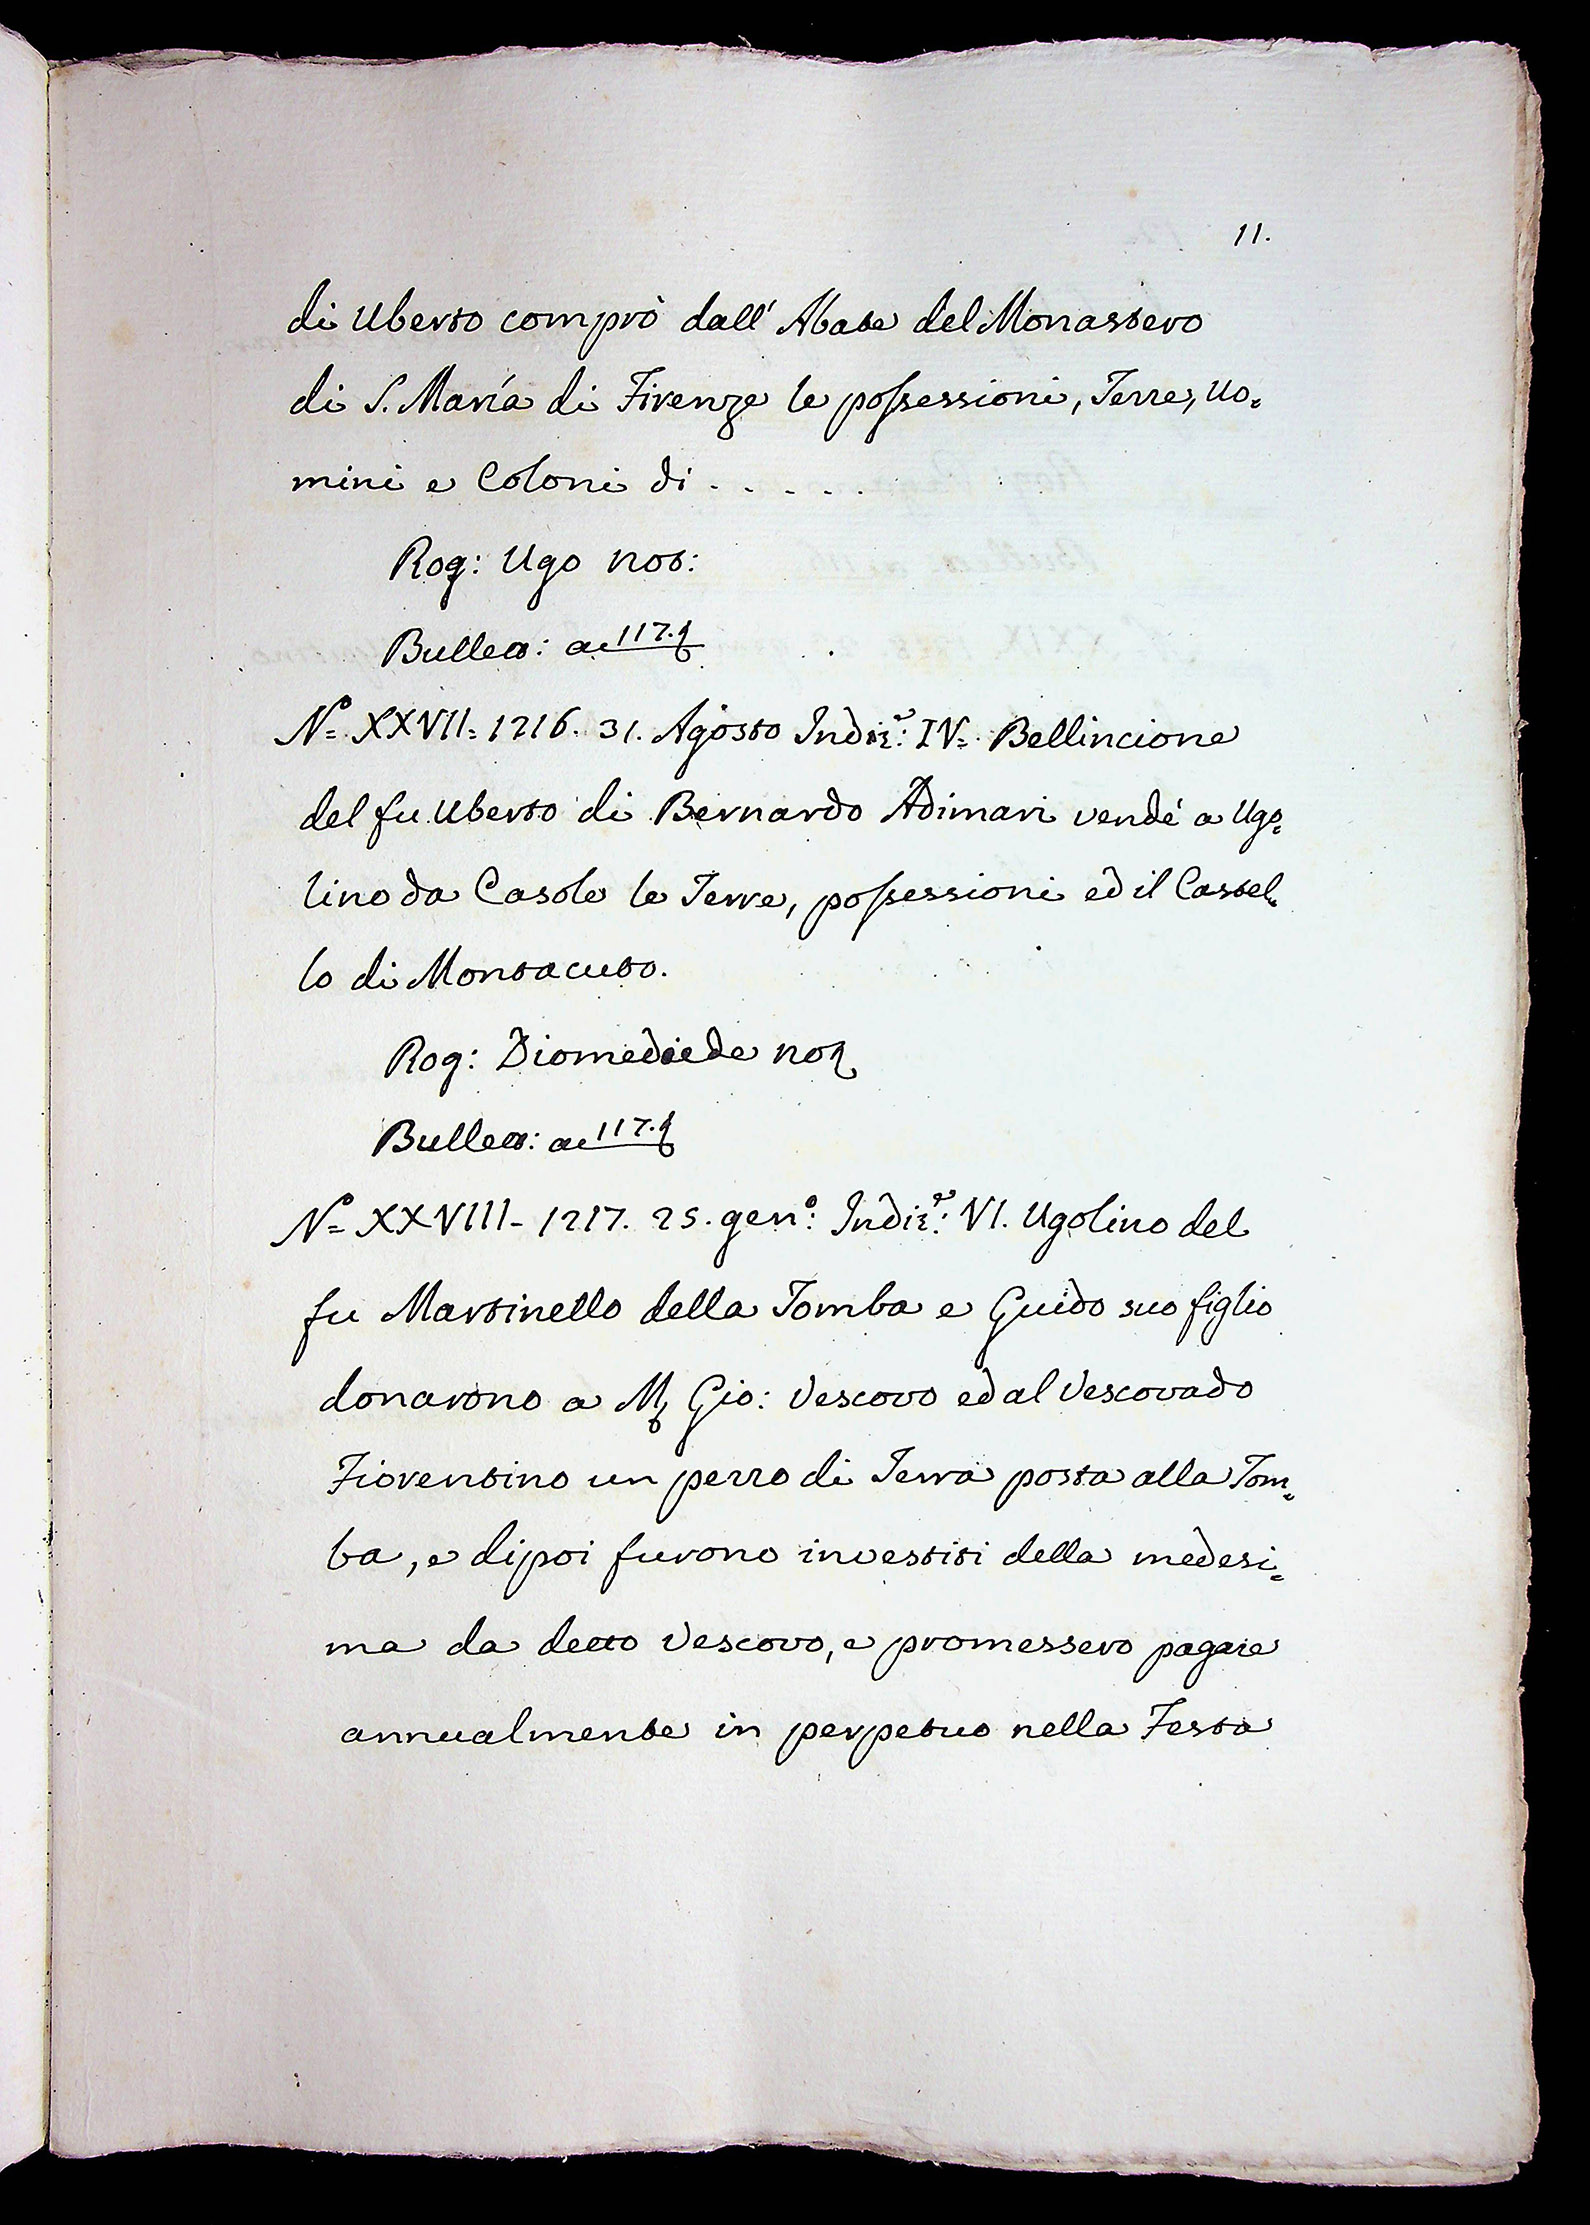 11.
di Uberto comprò dall' Abate del Monastero
di S. Maria di Firenze le possessioni, Terre, Uo=
mini e Coloni di . . . . . .
Rog: Ugo not:
Bullett: a 117.
N.º XXVII. 1216. 31. Agosto Indiz.e: IV. Bellincione
del fu Uberto di Bernardo Adimari vendé a Ugo=
lino da Casole le Terre, possessioni ed il Castel=
lo di Montacuto.
Rog: Diomediede not
Bullett: a 117.
N.º XXVIII. 1217. 25. genº: Indiz.e: VI. Ugolino del
fu Martinello della Tomba e Guido suo figlio
donarono a M. Gio: Vescovo ed al Vescovado
Fiorentino un pezzo di Terra posta alla Tom=
ba, e dipoi furono investiti della medesi=
ma da detto Vescovo, e promessero pagare
annualmente in perpetuo nella Festa